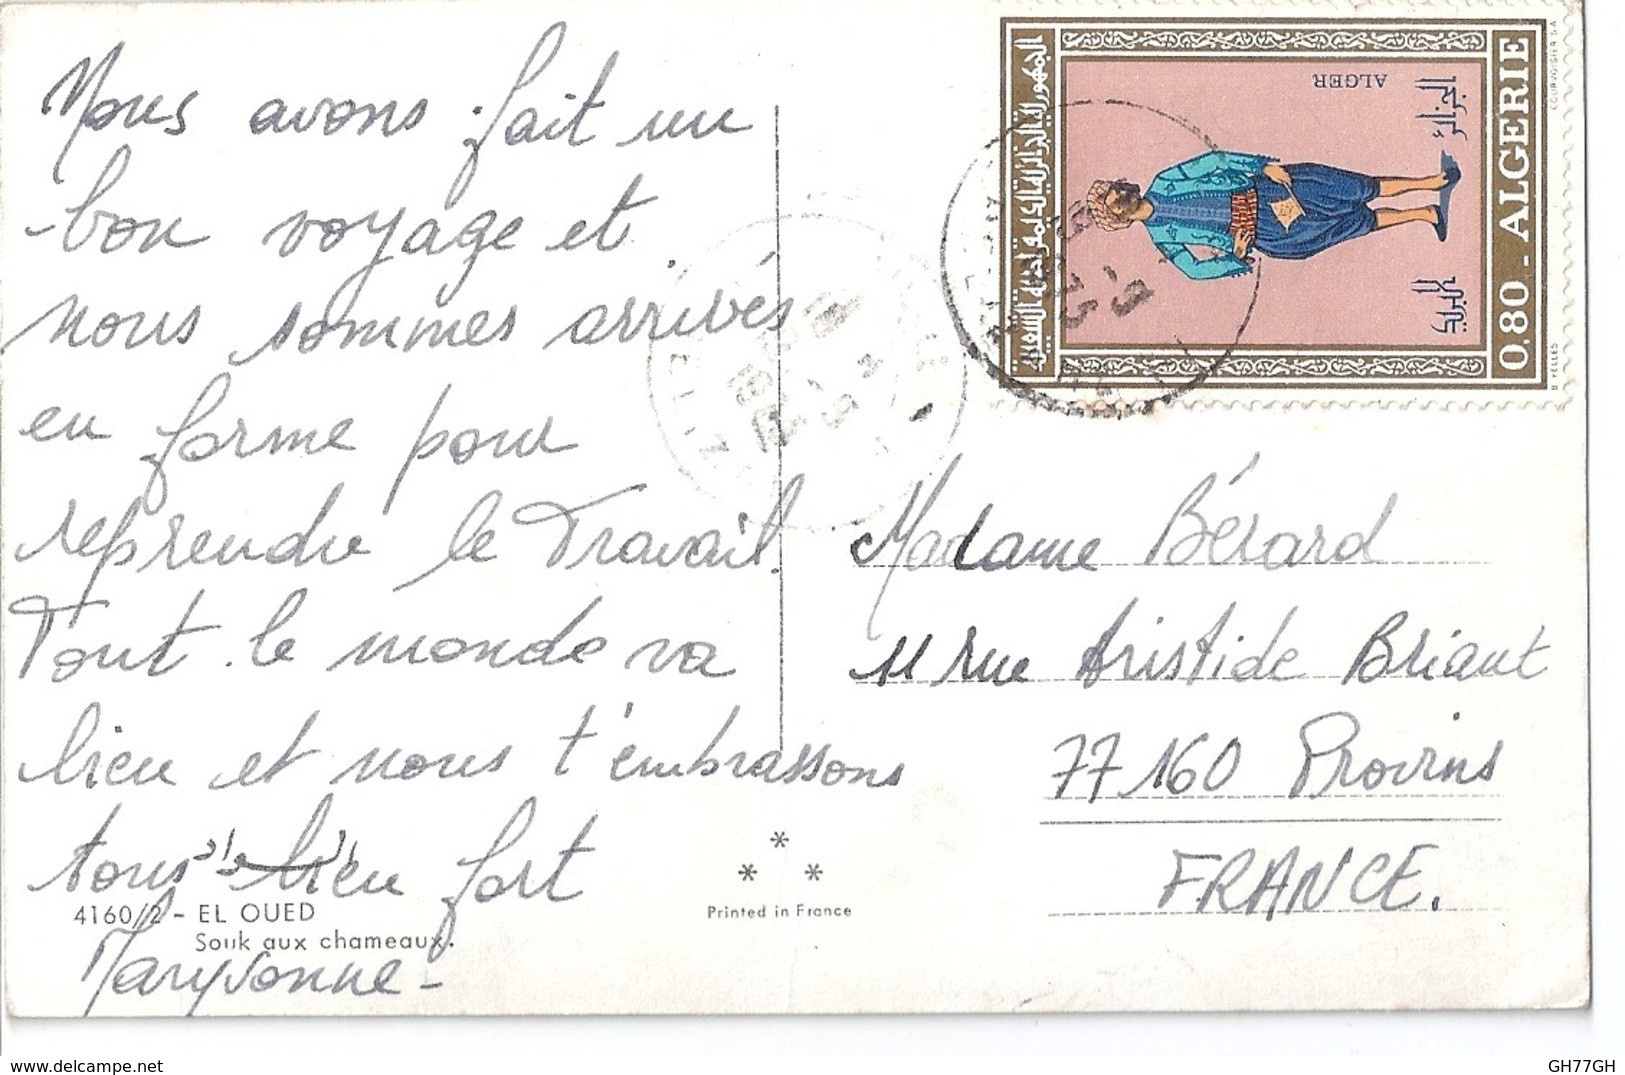 Nous avons fait un
bon voyage et
nous sommes arrivés
en forme pour
reprendre le Travail.
Tout le monde va
bien et nous t'embrassons
tous bien fort
Maryvonne -
4160/2 - EL OUED
Souk aux chameaux.
الوادي
*
* *
Printed in France
الجمهورية الجزائرية الديمقراطية الشعبية
ALGER
الجزائر
البريد
0,80 - ALGERIE
B. YELLES
COURVOISIER S.A.
Madame Bérard
11 rue Aristide Briant
77160 Provins
FRANCE.
GH77GH